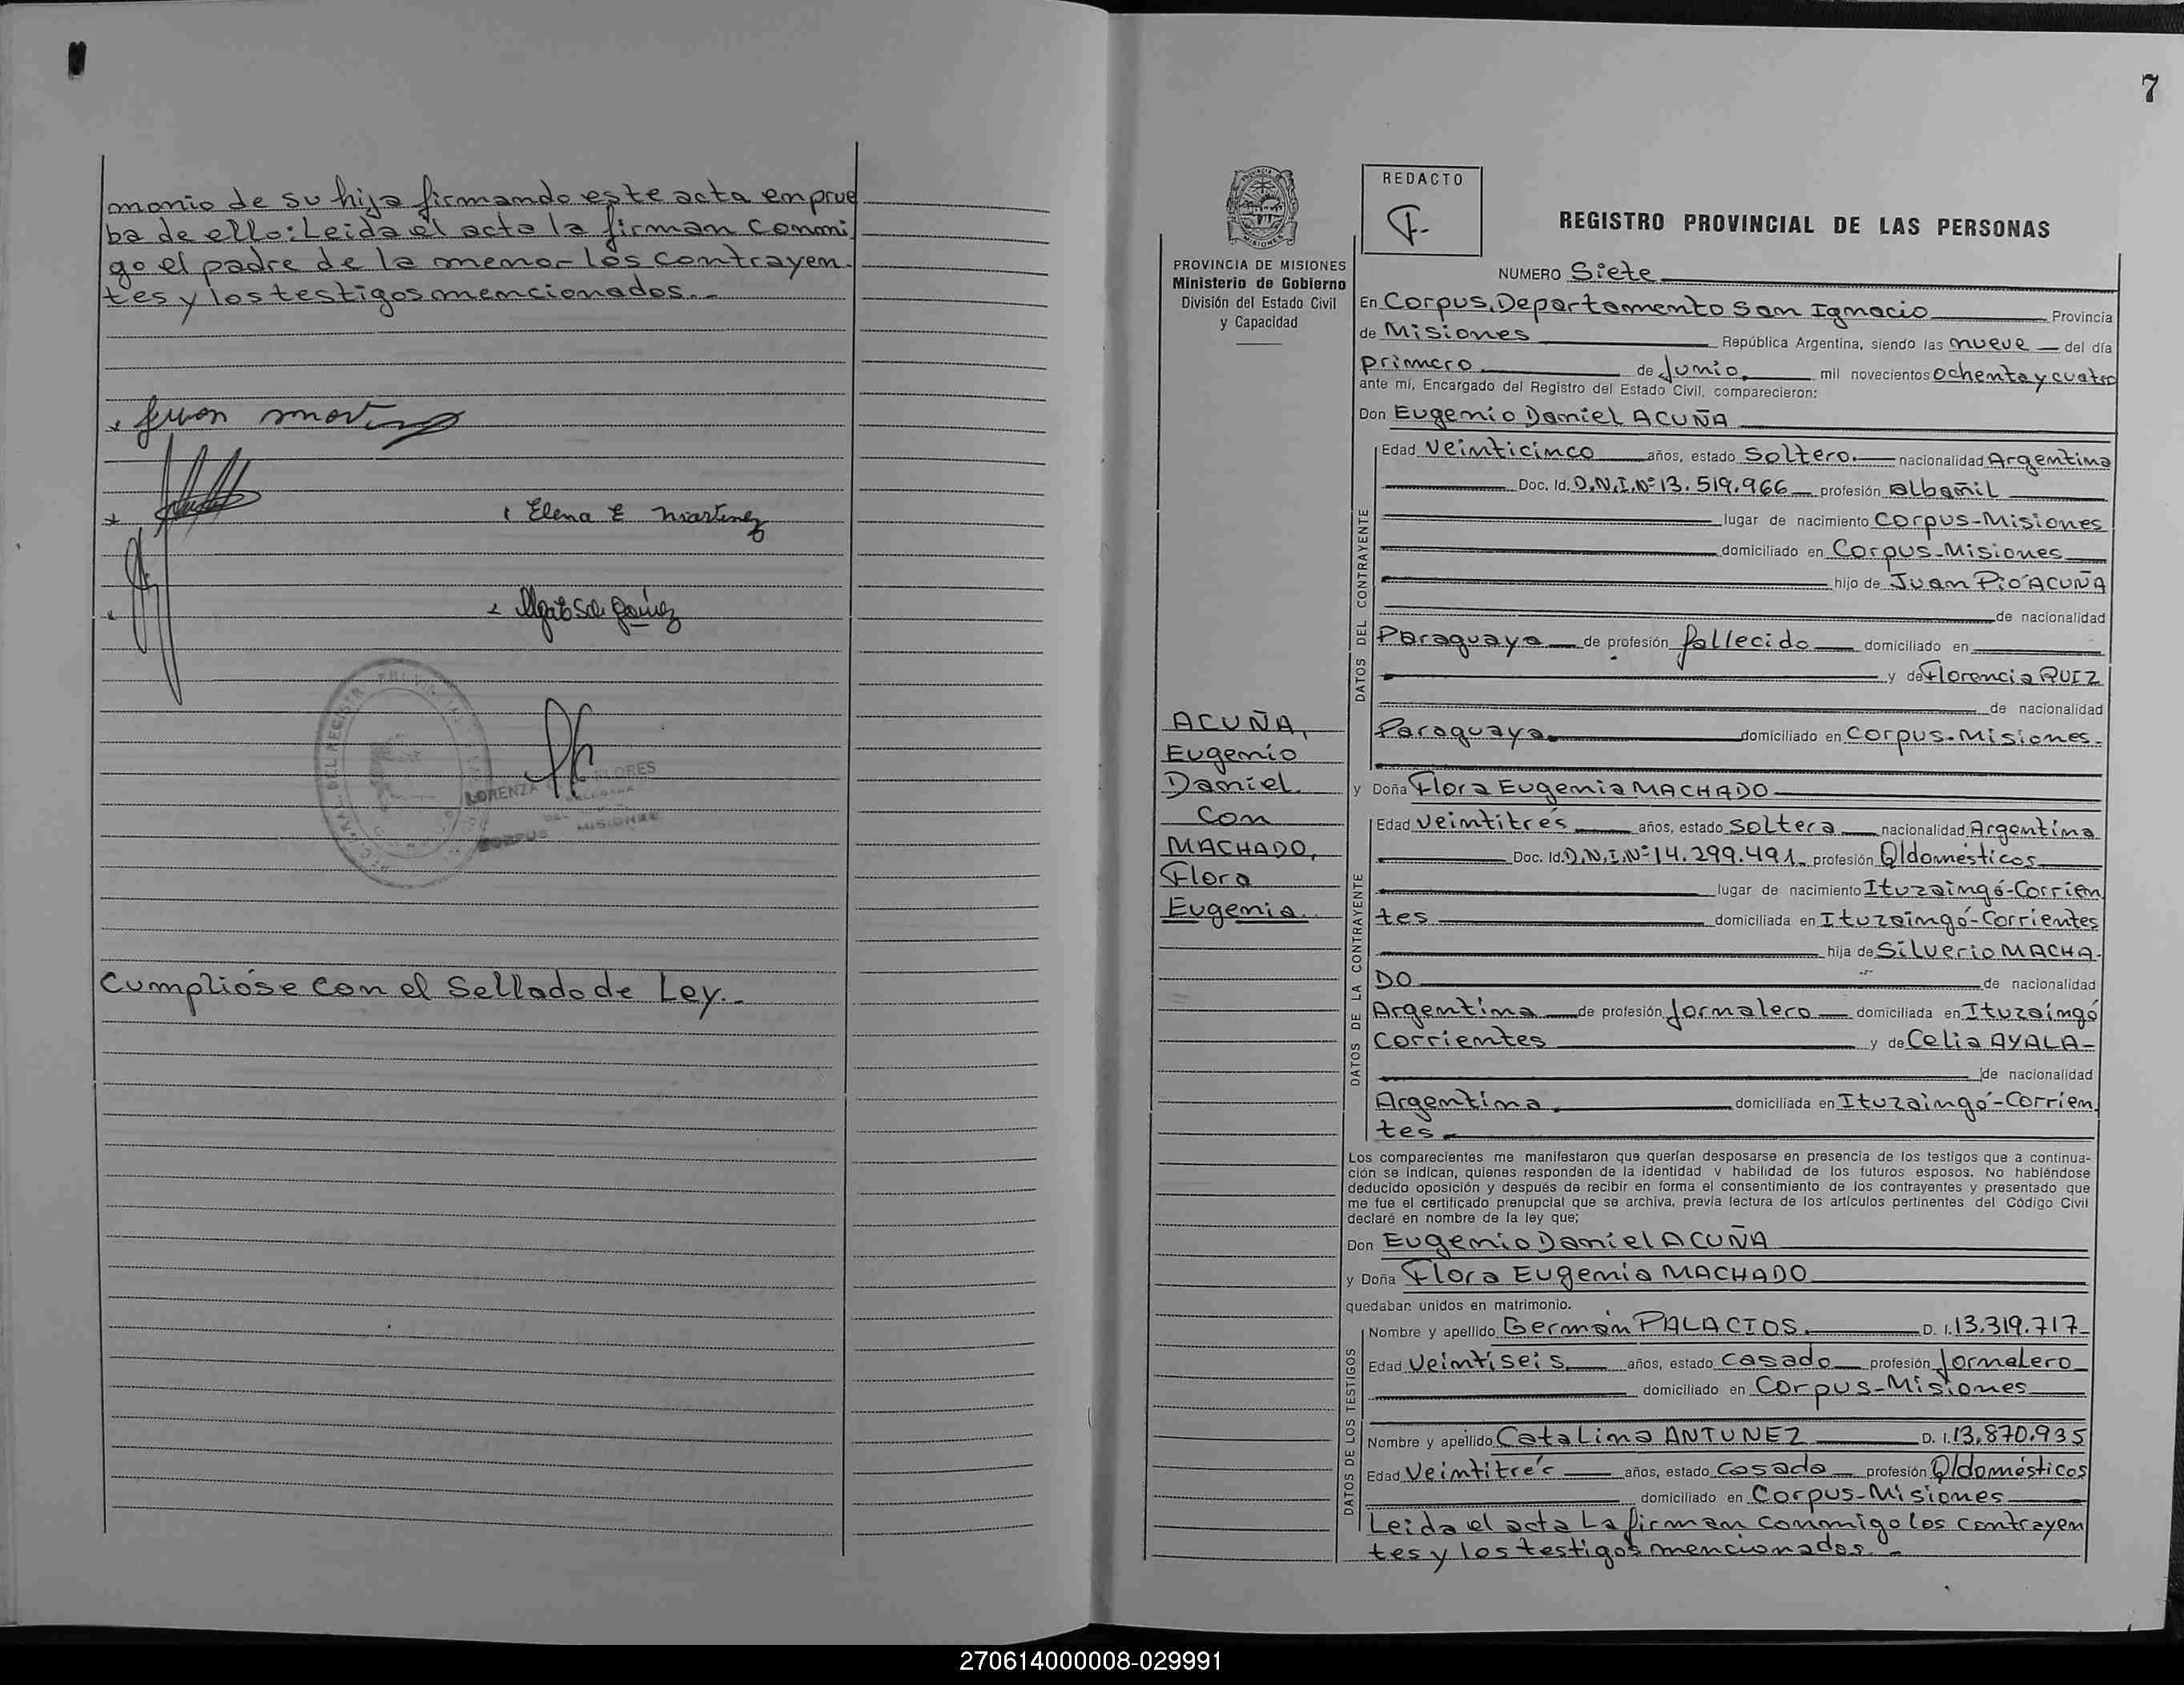 monio de su hija firmando este acta enprue
ba de ello: Leida el acta la firman Conmi
go el padre de la menor los contrayen
tes y los testigos mencionados.-
Elena E Martinez
DEL REGISTR
LORENZA FLORES
DELEGADA
CORPUS MISIONES
Cumplióse con el Sellado de Ley.-
7
REDACTO
F.
REGISTRO PROVINCIAL DE LAS PERSONAS
PROVINCIA DE MISIONES
Ministerio de Gobierno
División del Estado Civil
y Capacidad
NUMERO Siete
En Corpus, Departamento San Ignacio Provincia
de Misiones República Argentina, siendo las nueve del día
primero de Junio, mil novecientos ochenta y cuatro
ante mí, Encargado del Registro del Estado Civil, comparecieron:
Don Eugenio Daniel ACUÑA
DATOS DEL CONTRAYENTE
Edad Veinticinco años, estado Soltero. nacionalidad Argentina
Doc. Id. D.N.I.Nº 13.519.966 profesión albañil
lugar de nacimiento Corpus-Misiones
domiciliado en Corpus-Misiones
hijo de Juan Pío ACUÑA
de nacionalidad
Paraguaya de profesión fallecido domiciliado en
y de Florencia RUIZ
de nacionalidad
Paraguaya. domiciliado en Corpus-Misiones.
ACUÑA,
Eugenio
Daniel
Con
MACHADO,
Flora
Eugenia.
y Doña Flora Eugenia MACHADO
DATOS DE LA CONTRAYENTE
Edad Veintitrés años, estado Soltera nacionalidad Argentina
Doc. Id. D.N.I.Nº 14.299.491 profesión Q/domésticos
lugar de nacimiento Ituzaingó-Corrien
tes domiciliada en Ituzaingó-Corrientes
hija de Silverio MACHA-
DO de nacionalidad
Argentina de profesión Jornalero domiciliada en Ituzaingó
Corrientes y de Celia AYALA-
de nacionalidad
Argentina. domiciliada en Ituzaingó-Corrien
tes-
Los comparecientes me manifestaron que querían desposarse en presencia de los testigos que a continua-
ción se indican, quienes responden de la identidad y habilidad de los futuros esposos. No habiéndose
deducido oposición y después de recibir en forma el consentimiento de los contrayentes y presentado que
me fue el certificado prenupcial que se archiva, previa lectura de los artículos pertinentes del Código Civil
declaré en nombre de la ley que;
Don Eugenio Daniel ACUÑA
y Doña Flora Eugenia MACHADO
quedaban unidos en matrimonio.
DATOS DE LOS TESTIGOS
Nombre y apellido Germán PALACIOS. D. I. 13.319.717
Edad Veintiseis años, estado casado profesión Jornalero
domiciliado en Corpus-Misiones
Nombre y apellido Catalina ANTUNEZ D. I. 13.870.935
Edad Veintitrés años, estado casada profesión Q/domésticos
domiciliado en Corpus-Misiones
Leida el acta La firman conmigo los contrayen
tes y los testigos mencionados.-
270614000008-029991